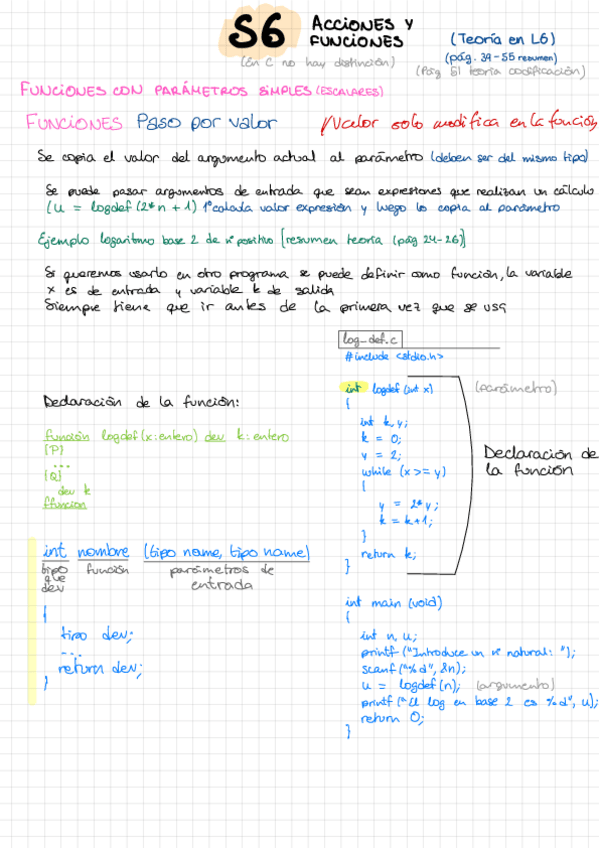 S6 ACCIONES Y
FUNCIONES
(En C no hay distinción)
(Teoría en L6)
(pág. 39-55 resumen)
(Pág 51 teoría codificación)
FUNCIONES CON PARÁMETROS SIMPLES (ESCALARES)
FUNCIONES Paso por valor
¡Valor solo modifica en la función
Se copia el valor del argumento actual al parámetro (deben ser del mismo tipo)
Se puede pasar argumentos de entrada que sean expresiones que realizan un cálculo
(u = logdef(2*n+1) 1º calcula valor expresión y luego lo copia al parámetro
Ejemplo logaritmo base 2 de nº positivo [resumen teoría (pág 24-26)]
Si queremos usarlo en otro programa se puede definir como función, la variable
x es de entrada y variable k de salida
Siempre tiene que ir antes de la primera vez que se usa
log_def.c
#include <stdio.h>
int logdef (int x)
(parámetro)
{
int k,y;
k = 0;
y = 2;
while (x >= y)
{
y = 2*y;
k = k+1;
}
return k;
}
Declaración de
la función
int main (void)
{
int n, u;
printf ("Introduce un nº natural: ");
scanf ("%d", &n);
u = logdef(n); (argumento)
printf ("El log en base 2 es %d", u);
return 0;
}
Declaración de la función:
función logdef(x:entero) dev k:entero
{P}
...
{Q}
dev k
ffunción
int nombre (tipo name, tipo name)
tipo
que
dev
función
parámetros de
entrada
{
tipo dev;
...
return dev;
}